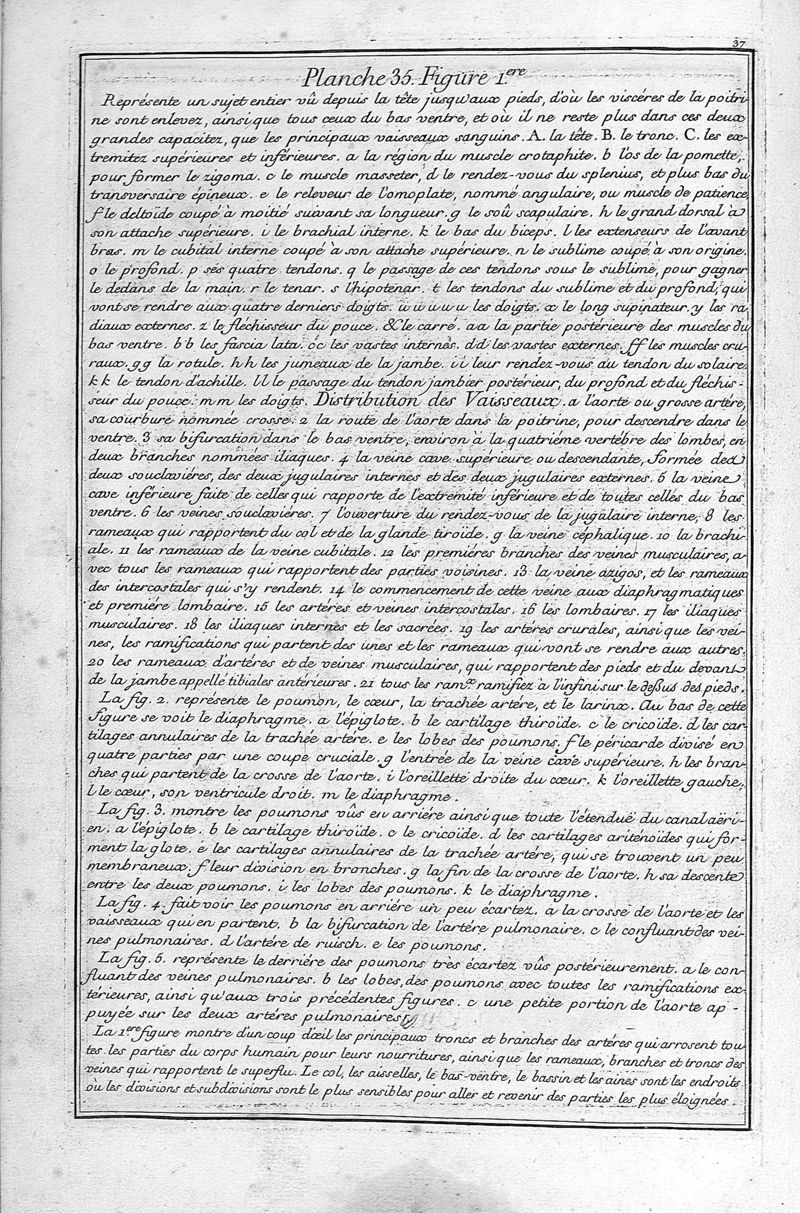 37
Planche 35. Figure 1.ere
Représente un sujet entier vû depuis la tête jusqu'aux pieds, d'où les viscéres de la poitri
ne sont enlevez, ainsi que tous ceux du bas ventre, et où il ne reste plus dans ces deux
grandes capacitez, que les principaux vaisseaux sanguins. A. la tête. B. le tronc. C. les ex-
tremitez supérieures et inférieures. a la région du muscle crotaphite. b l'os de la pomette,
pour former le zigoma. c le muscle masseter, d le rendez-vous du splenius, et plus bas du
transversaire épineux. e le releveur de l'omoplate, nommé angulaire, ou muscle de patience,
f le deltoïde coupé à moitié suivant sa longueur. g le soû scapulaire. h le grand dorsal à
son attache supérieure. i le brachial interne. k le bas du biceps. l les extenseurs de l'avant
bras. m le cubital interne coupé à son attache supérieure. n le sublime coupé à son origine.
o le profond. p ses quatre tendons. q le passage de ces tendons sous le sublime, pour gagner
le dedans de la main. r le tenar. s l'hipotenar. t les tendons du sublime et du profond, qui
vont se rendre aux quatre derniers doigts. u u u u u les doigts. x le long supinateur. y les ra
diaux externes. z le fléchisseur du pouce. & le carré. aa la partie postérieure des muscles du
bas ventre. bb les fascia lata. cc les vastes internes. dd les vastes externes. ff les muscles cru-
raux. gg la rotule. hh les jumeaux de la jambe. ii leur rendez-vous au tendon du solaire.
kk le tendon d'achille. ll le passage du tendon jambier postérieur, du profond et du fléchis-
seur du pouce. mm les doigts. Distribution des Vaisseaux. a l'aorte ou grosse artére,
sa courbure nommée crosse. 2 la route de l'aorte dans la poitrine, pour descendre dans le
ventre. 3 sa bifurcation dans le bas ventre, environ à la quatriéme vertébre des lombes, en
deux branches nommées iliaques. 4 la veine cave supérieure ou descendante, formée des
deux souclaviéres, des deux jugulaires internes et des deux jugulaires externes. 5 la veine
cave inférieure, faite de celles qui rapporte de l'extrémité inférieure et de toutes celles du bas
ventre. 6 les veines souclaviéres. 7 l'ouverture du rendez-vous de la jugulaire interne, 8 les
rameaux qui rapportent du col et de la glande tiroïde. 9 la veine céphalique. 10 la brachi-
ale. 11 les rameaux de la veine cubitale. 12 les premiéres branches des veines musculaires, a-
vec tous les rameaux qui rapportent des parties voisines. 13 la veine azigos, et les rameaux
des intercostales qui s'y rendent. 14 le commencement de cette veine aux diaphragmatiques
et premiére lombaire. 15 les artéres et veines intercostales. 16 les lombaires. 17 les iliaques
musculaires. 18 les iliaques internes et les sacrées. 19 les artéres crurales, ainsi que les vei-
nes, les ramifications qui partent des unes et les rameaux qui vont se rendre aux autres.
20 les rameaux d'artéres et de veines musculaires, qui rapportent des pieds et du devant
de la jambe appellé tibiales antérieures. 21 tous les ram.x ramifiez à l'infini sur le dessus des pieds.
La fig. 2. représente le poumon, le cœur, la trachée artére, et le larinx. Au bas de cette
figure se voit le diaphragme. a l'épiglote. b le cartilage thiroïde. c le cricoïde. d les car-
tilages annulaires de la trachée artére. e les lobes des poumons. f le péricarde divisé en
quatre parties par une coupe cruciale. g l'entrée de la veine cave supérieure. h les bran-
ches qui partent de la crosse de l'aorte. i l'oreillette droite du cœur. k l'oreillette gauche,
l le cœur, son ventricule droit. m le diaphragme.
La fig. 3. montre les poumons vûs en arriére ainsi que toute l'étenduë du canal aëri-
en. a l'épiglote. b le cartilage thiroïde. c le cricoïde. d les cartilages aritenoïdes qui for-
ment la glote. e les cartilages annulaires de la trachée artére, qui se trouvent un peu
membraneux. f leur division en bronches. g la fin de la crosse de l'aorte. h sa descente
entre les deux poumons. i les lobes des poumons. k le diaphragme.
La fig. 4. fait voir les poumons en arriére un peu écartez. a la crosse de l'aorte et les
vaisseaux qui en partent. b la bifurcation de l'artére pulmonaire. c le confluant des vei-
nes pulmonaires. d l'artére de ruisch. e les poumons.
La fig. 5. représente le derriére des poumons très écartez vûs postérieurement. a le con-
fluant des veines pulmonaires. b les lobes, des poumons avec toutes les ramifications ex-
térieures, ainsi qu'aux trois précédentes figures. c une petite portion de l'aorte ap-
puyée sur les deux artéres pulmonaires.
La 1.ere figure montre d'un coup d'œil les principaux troncs et branches des artéres qui arrosent tou-
tes les parties du corps humain pour leurs nourritures, ainsi que les rameaux, branches et troncs des
veines qui rapportent le superflu. Le col, les aisselles, le bas-ventre, le bassin et les aines sont les endroits
où les divisions et subdivisions sont le plus sensibles pour aller et revenir des parties les plus éloignées.